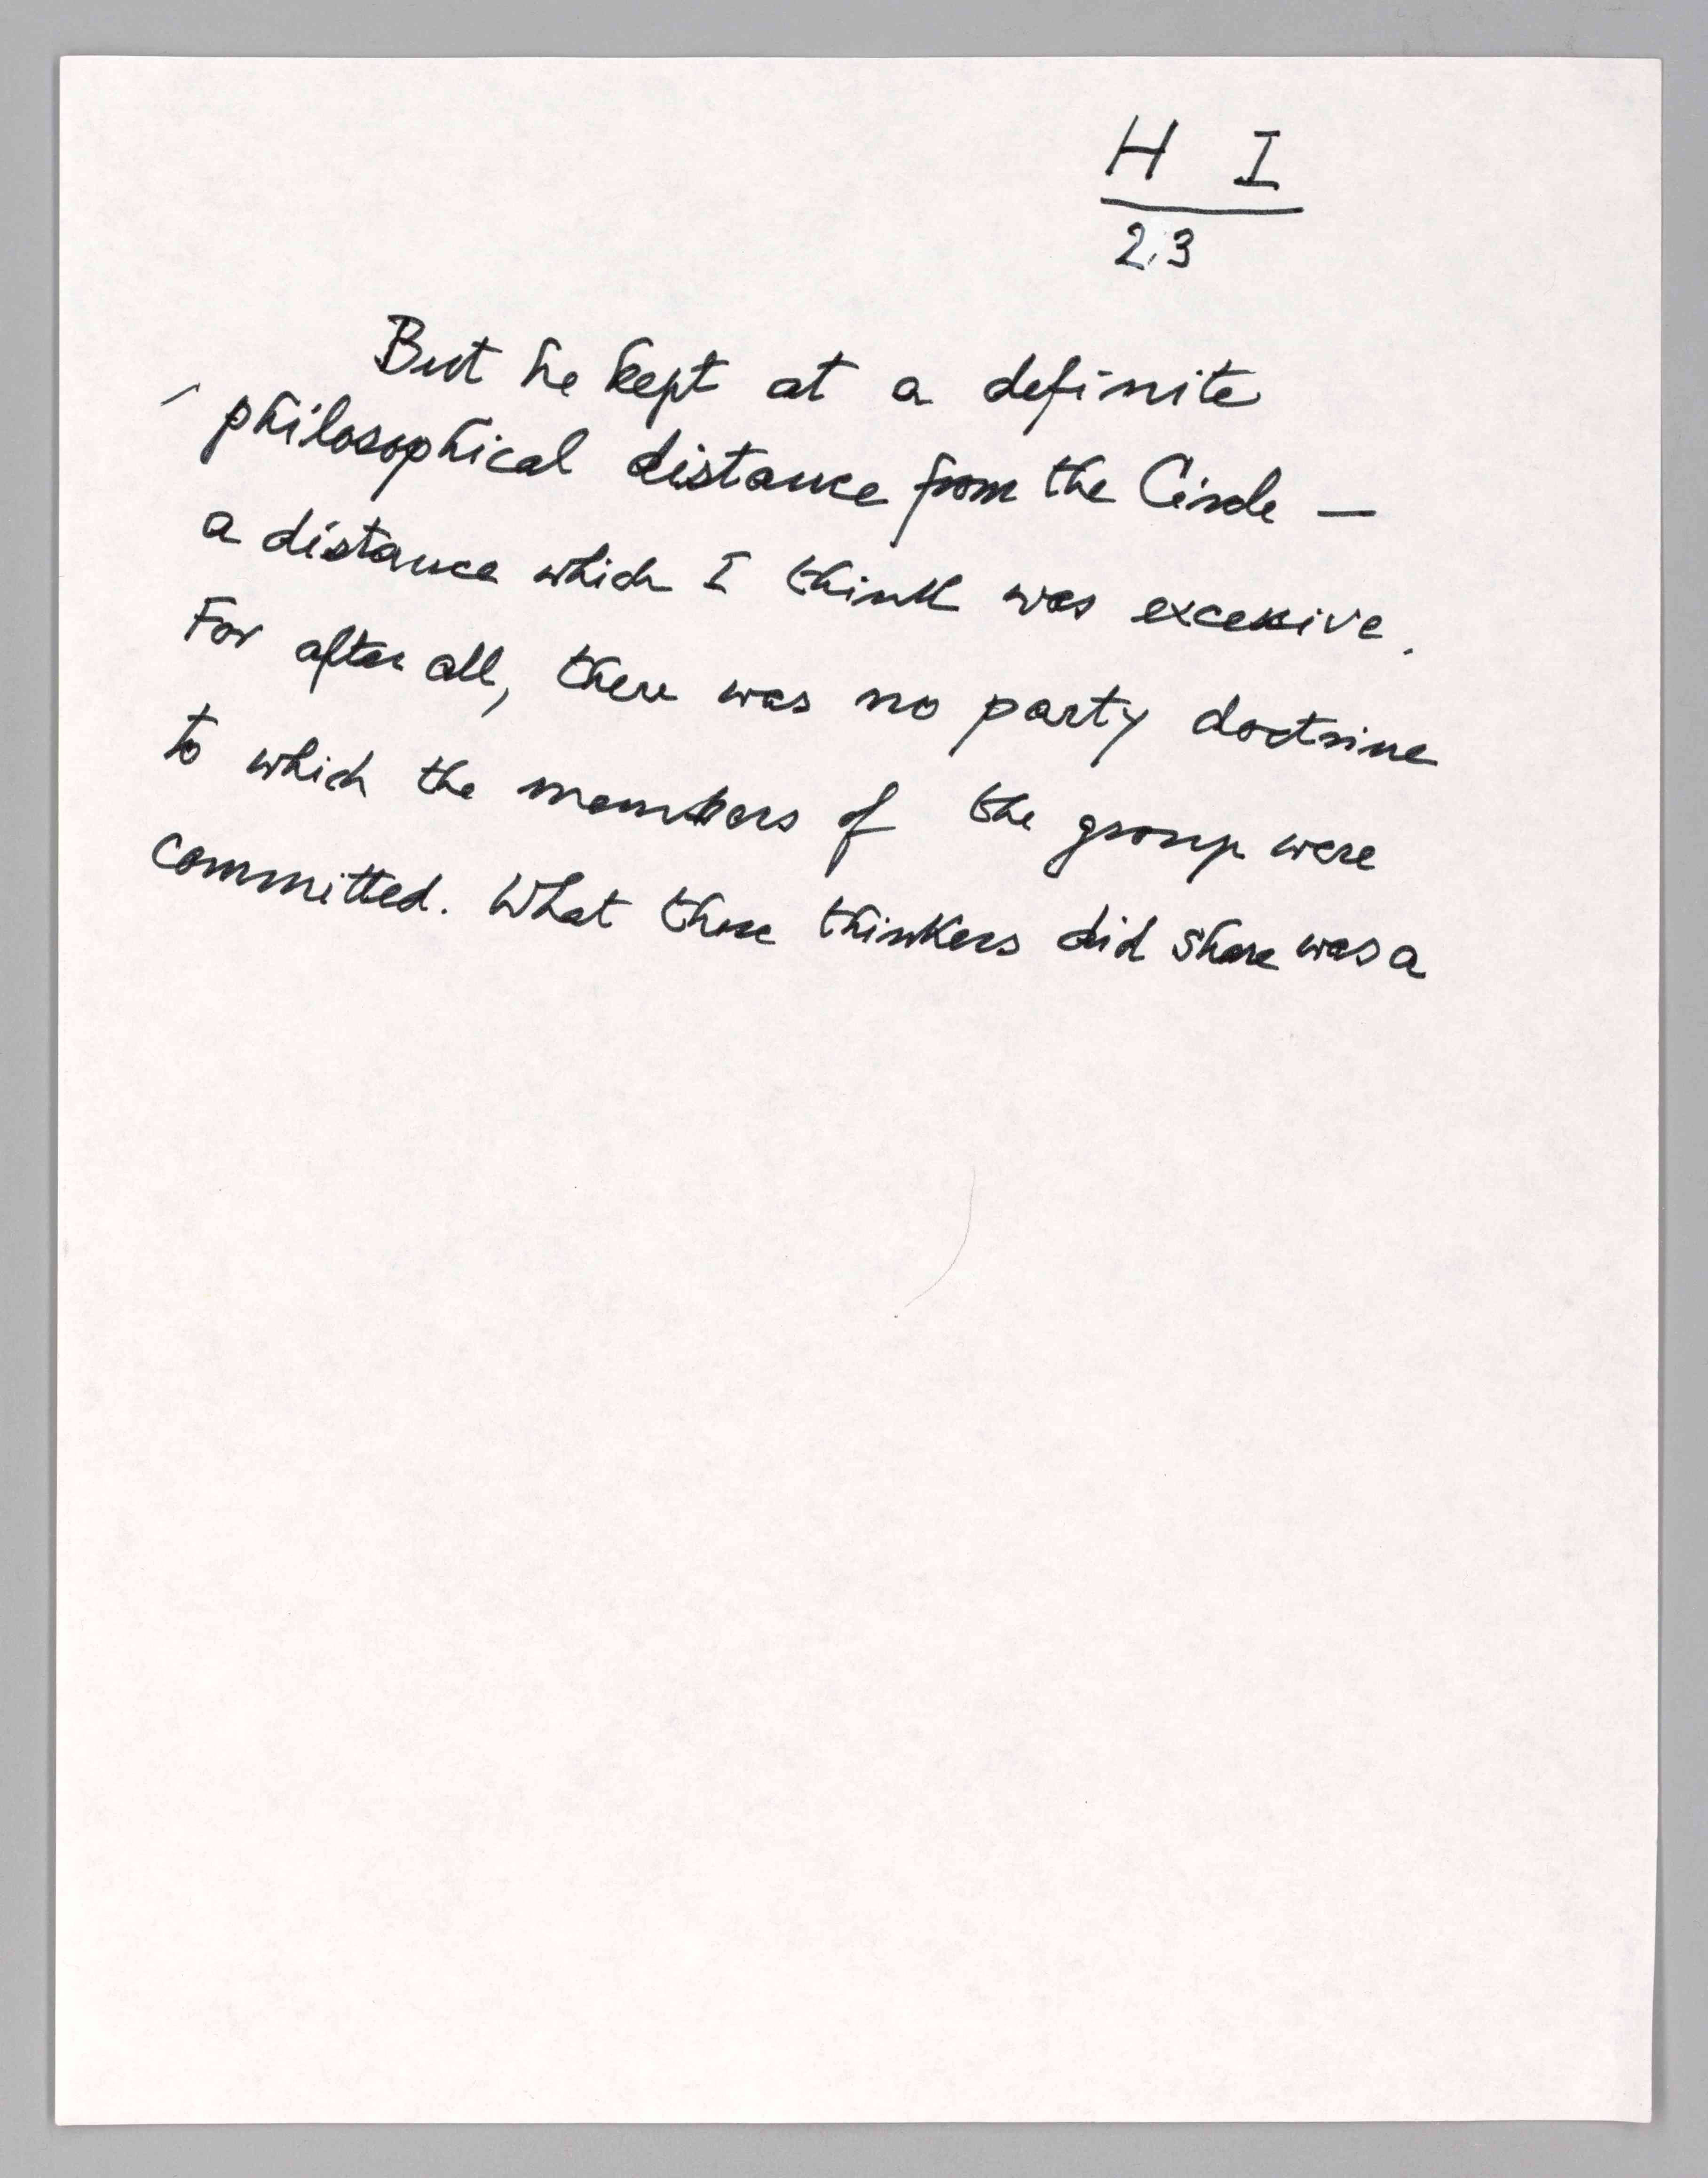 H I
23
But he kept at a definite
philosophical distance from the Circle —
a distance which I think was excessive.
For after all, there was no party doctrine
to which the members of the group were
committed. What these thinkers did share was a